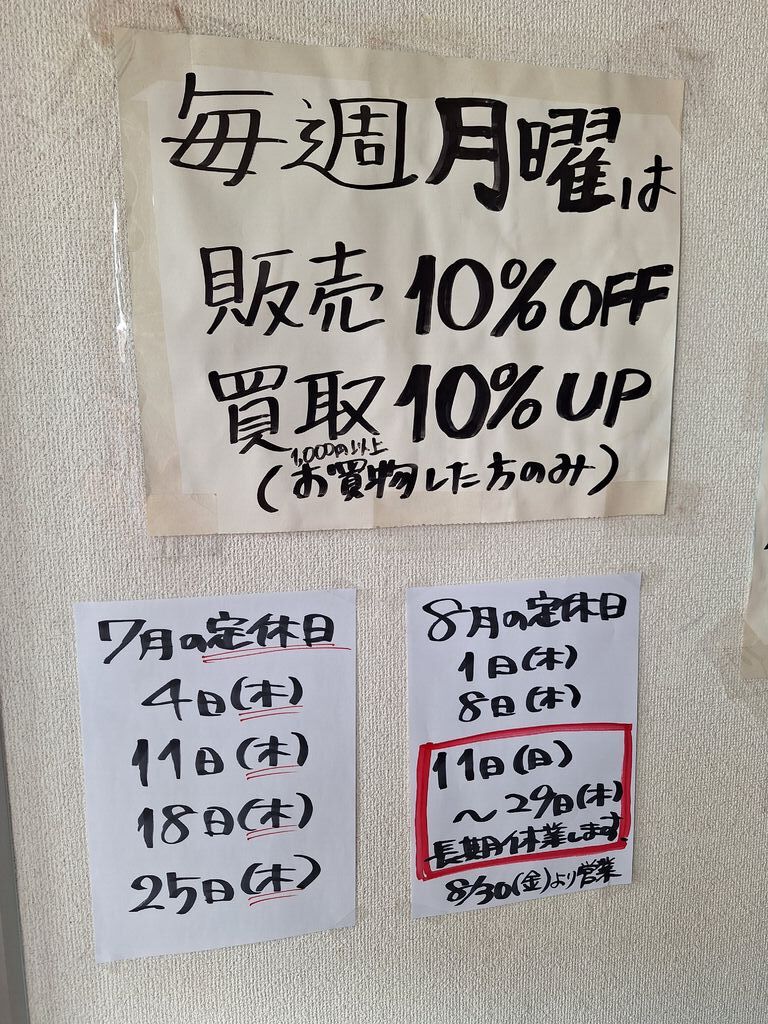 毎週月曜は
販売10%OFF
買取10%UP
1,000円以上
(お買物した方のみ)
7月の定休日
4日(木)
11日(木)
18日(木)
25日(木)
8月の定休日
1日(木)
8日(木)
11日(日)
〜29日(木)
長期休業します。
8/30(金)より営業